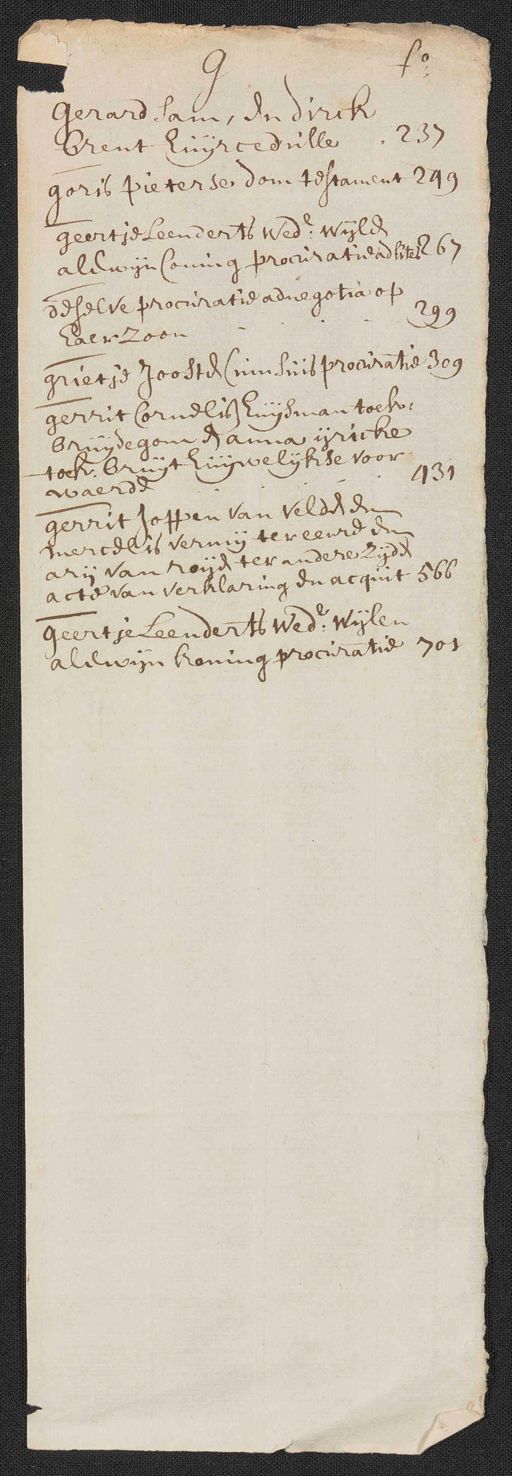 G fo:
gerard sam, en dirck
brent huijrcedulle . 237
goris pieterse dom testament 249
geertje Leenderts Wede: Wijle
alewijn Coning procuratie ad lites 267
deselve procuratie ad negotia op
haer Zoon 299
grietje Joosten procuratie 309
gerrit Cornelisz Huijsman toek:
bruijdegom & anna ijricke
toek: bruijt huijwelijkse voor
waerde 431
gerrit Joppen van Velde en
mercelis vermij ter eenre en
arij van roijen ter andere Zijde
acte van verklaring en acquit 566
geertje Leenderts Wede: Wijlen
alewijn koning procuratie 701